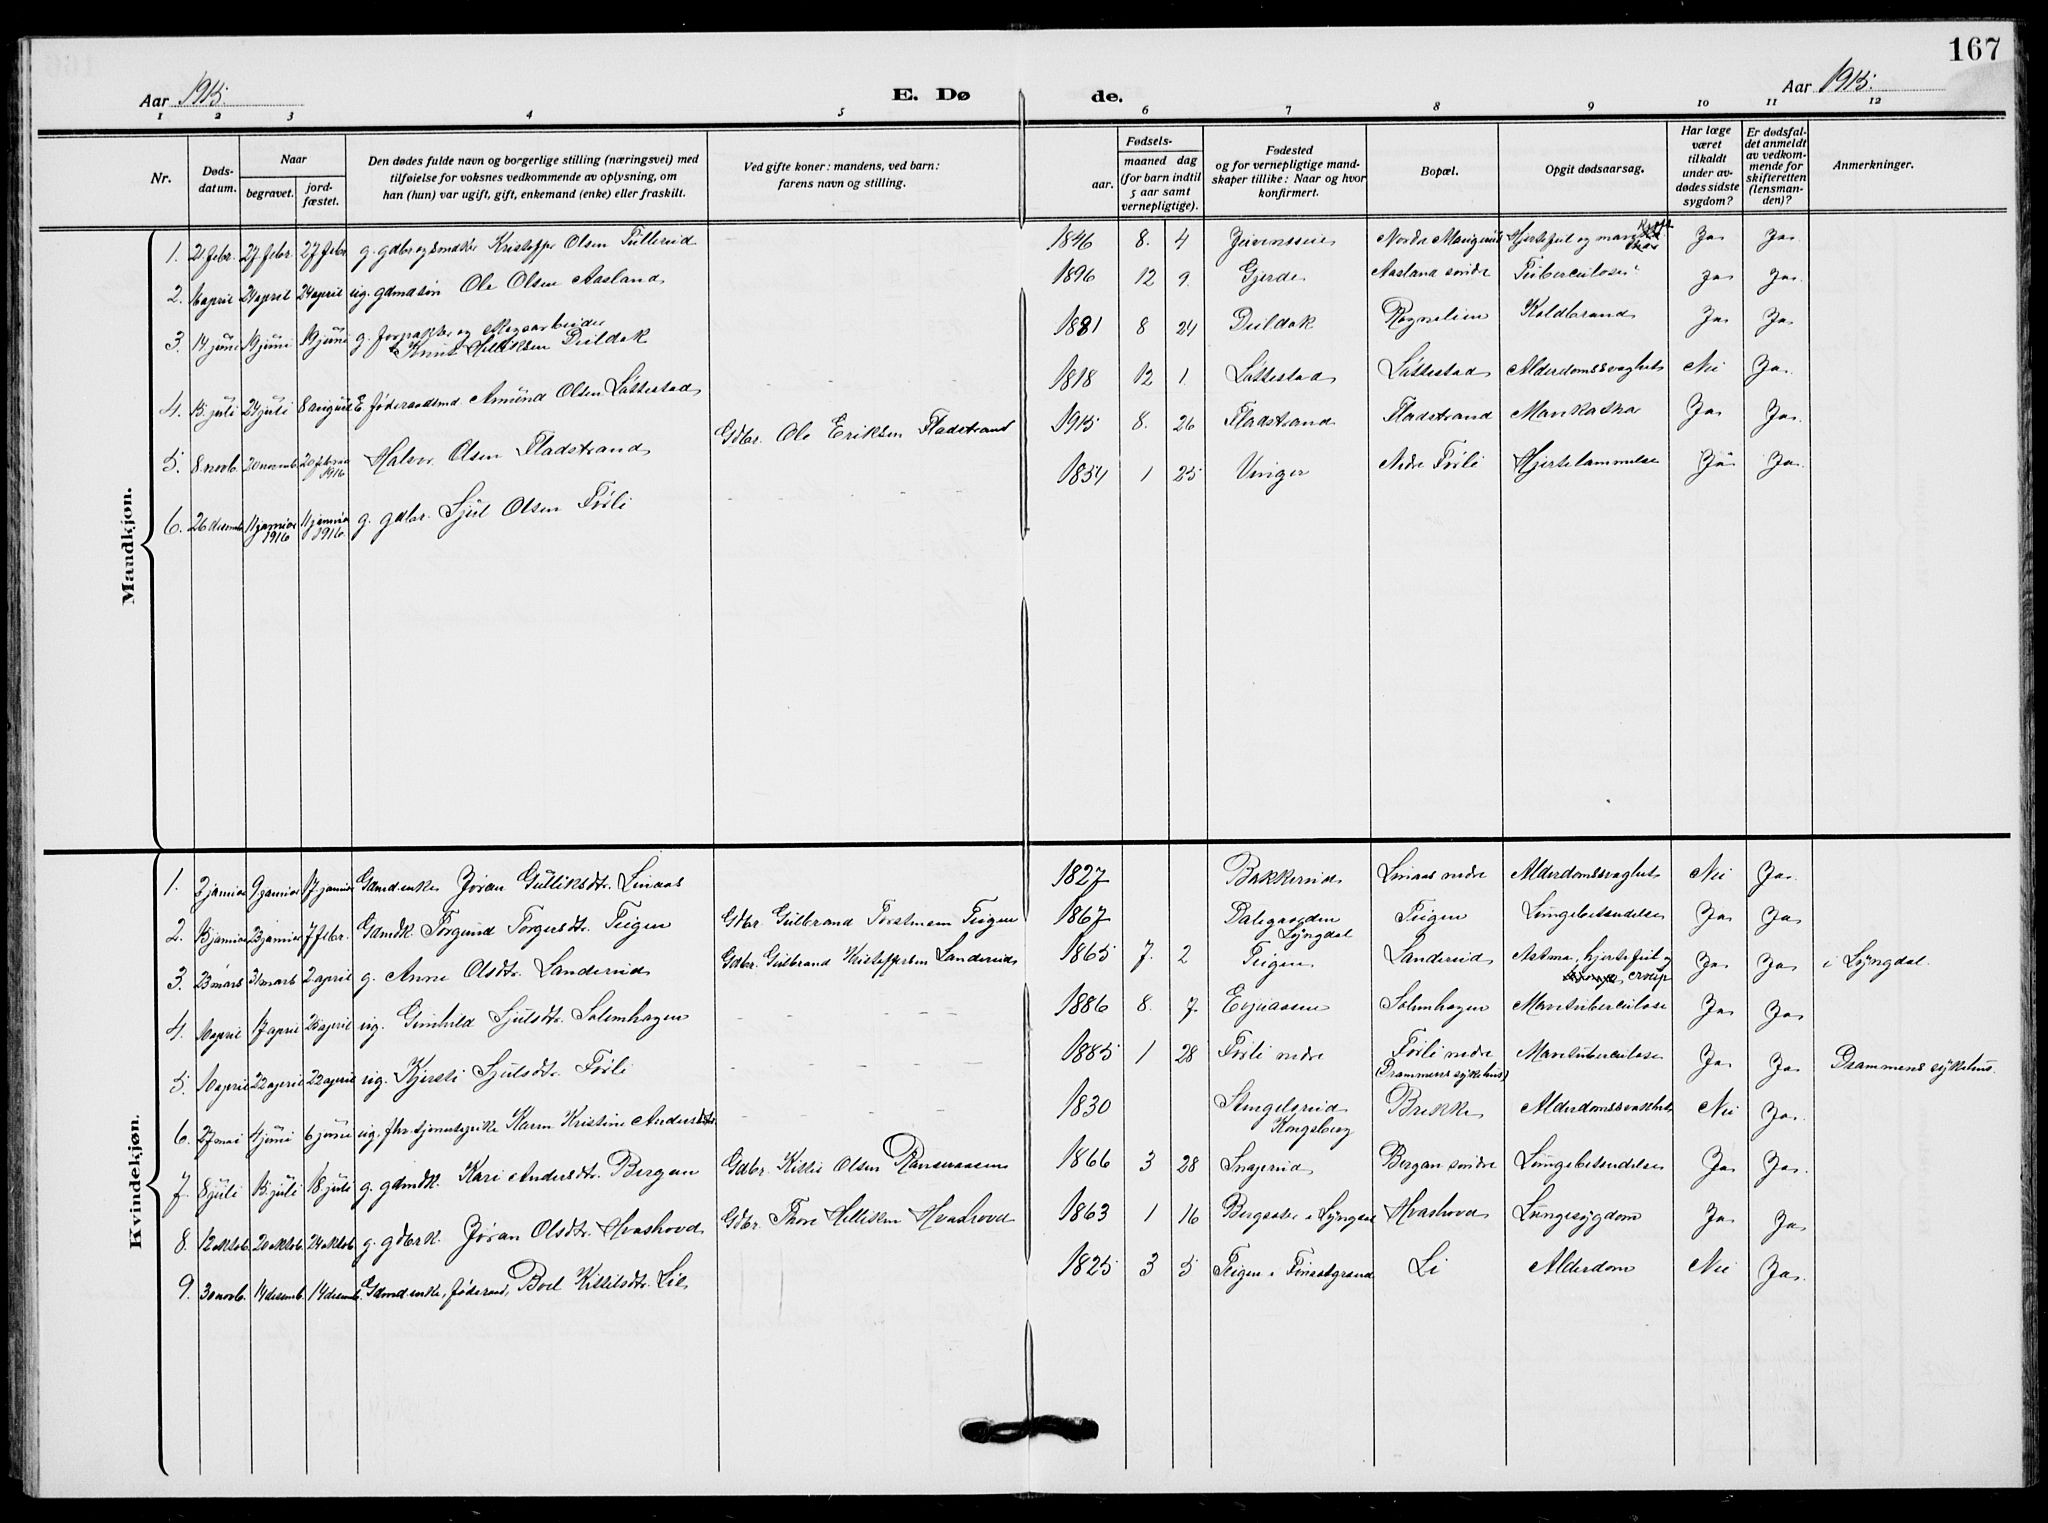 167
Aar 1915.
E. Dø de.
Aar 1915.
1 2 3 4 5 6 7 8 9 10 11 12
Nr.
Døds-
datum.
Naar
begravet.
jord-
fæstet.
Den dødes fulde navn og borgerlige stilling (næringsvei) med
tilføielse for voksnes vedkommende av oplysning, om
han (hun) var ugift, gift, enkemand (enke) eller fraskilt.
Ved gifte koner: mandens, ved barn:
farens navn og stilling.
Fødsels-
aar.
maaned dag
(for barn indtil
5 aar samt
vernepligtige).
Fødested
og for vernepligtige mand-
skaper tillike: Naar og hvor
konfirmert.
Bopæl.
Opgit dødsaarsag.
Har læge
været
tilkaldt
under av-
dødes sidste
sygdom?
Er dødsfal-
det anmeldt
av vedkom-
mende for
skifteretten
(lensman-
den)?
Anmerkninger.
Mandkjøn.
1. 21 febr. 27 febr. 27 febr. g. gdbr og smed Kristoffer Olsen Tullerud 1846 8. 4 Hjertefeil og Ja Ja.
2. 16 april 24 april 24 april ug. gdmdsøn Ole Olsen Aasland 1896 12 9. Gjerde Aasland søndre Tuberculose Ja Ja.
3. 14 juni 19 juni 19 juni g. forpakter og skogsarbeider
Knut Helliksen Dildak 1881 8 24 Dildak Rognelien Koldbrand Ja Ja
4. 15. juli 24 juli 8 august E. føderaadsmd Amund Olsen Lättestad 1818 12 1. Lättestad Lättestad Alderdomssvaghet Nei Ja.
5. 8 novb. 20 novemb. 20 febru 1916 Halvor Olsen Fladstrand Gdbr. Ole Eriksen Fladstrand 1915 8. 26 Fladstrand Fladstrand Ja Ja.
6. 26 desemb. 11 januar 1916 11 januar 1916. g. gdbr. Sjul Olsen Førli 1854 1 25 Vinger Nedre Førli Hjertelammelse Ja Ja.
Kvindekjøn.
1. 2 januar 9 januar 17 januar Gdmdenke Jøran Gulliksdtr. Linaas 1827 Bakkerud Linaas nedre Alderdomssvaghet Nei Ja.
2. 13 januar 23 januar 7 febr. Gdmdk. Torgund Torgersdtr. Teigen Gdbr. Gulbrand Torstensen Teigen 1867 Dalegaarden
Lyngdal Teigen Lungebetændelse Ja Ja
3. 23 mars 31 mars 2 april g. Anne Olsdtr. Landerud Gdbr. Gulbrand Kristoffersen Landerud 1865 7. 2 Teigen Landerud Astma, hjertefeil og
croup Ja Ja i Lyngdal.
4. 10 april 17 april 25 april ug. Gunhild Sjulsdtr. Solemhagen 1886 8. 7. Evjuaasen Solemhagen Mavetuberculose Ja Ja
5. 10 april 22 april 22 april ug. Kjersti Sjulsdtr. Førli 1885 1 28 Førli nedre Førli nedre
(Drammens sykehus) Mavetuberculose Ja Ja Drammens sykehus.
6. 27 mai 4 juni 6 juni ug. fhv. tjenestepike Karen Kristine Andersdtr. 1830 Stengelsrud
Kongsberg Brekke Alderdomssvakhet Nei Ja.
7. 8 juli 15 juli 18 juli g. gdmdk. Kari Andersdtr. Bergan Gdbr. Kittil Olsen Ramsraasen 1866 3 28 Snagerud Bergan søndre Lungebetændelse Ja Ja.
8. 12 oktob. 20 oktob. 24 oktob. g. gdbrk. Jøran Olsdtr. Hvashovd Gdbr. Thore Helliksen Hvashovd 1863 1 16 Bergsæter i Lyngdal Hvashovd Lungesygdom Ja Ja
9. 30 novb. 14 desemb. 14 desemb. Gdmdenke, føderaad, Boel Kittilsdtr. Lie 1825 3 5 Teigen i Li Alderdom Nei Ja.